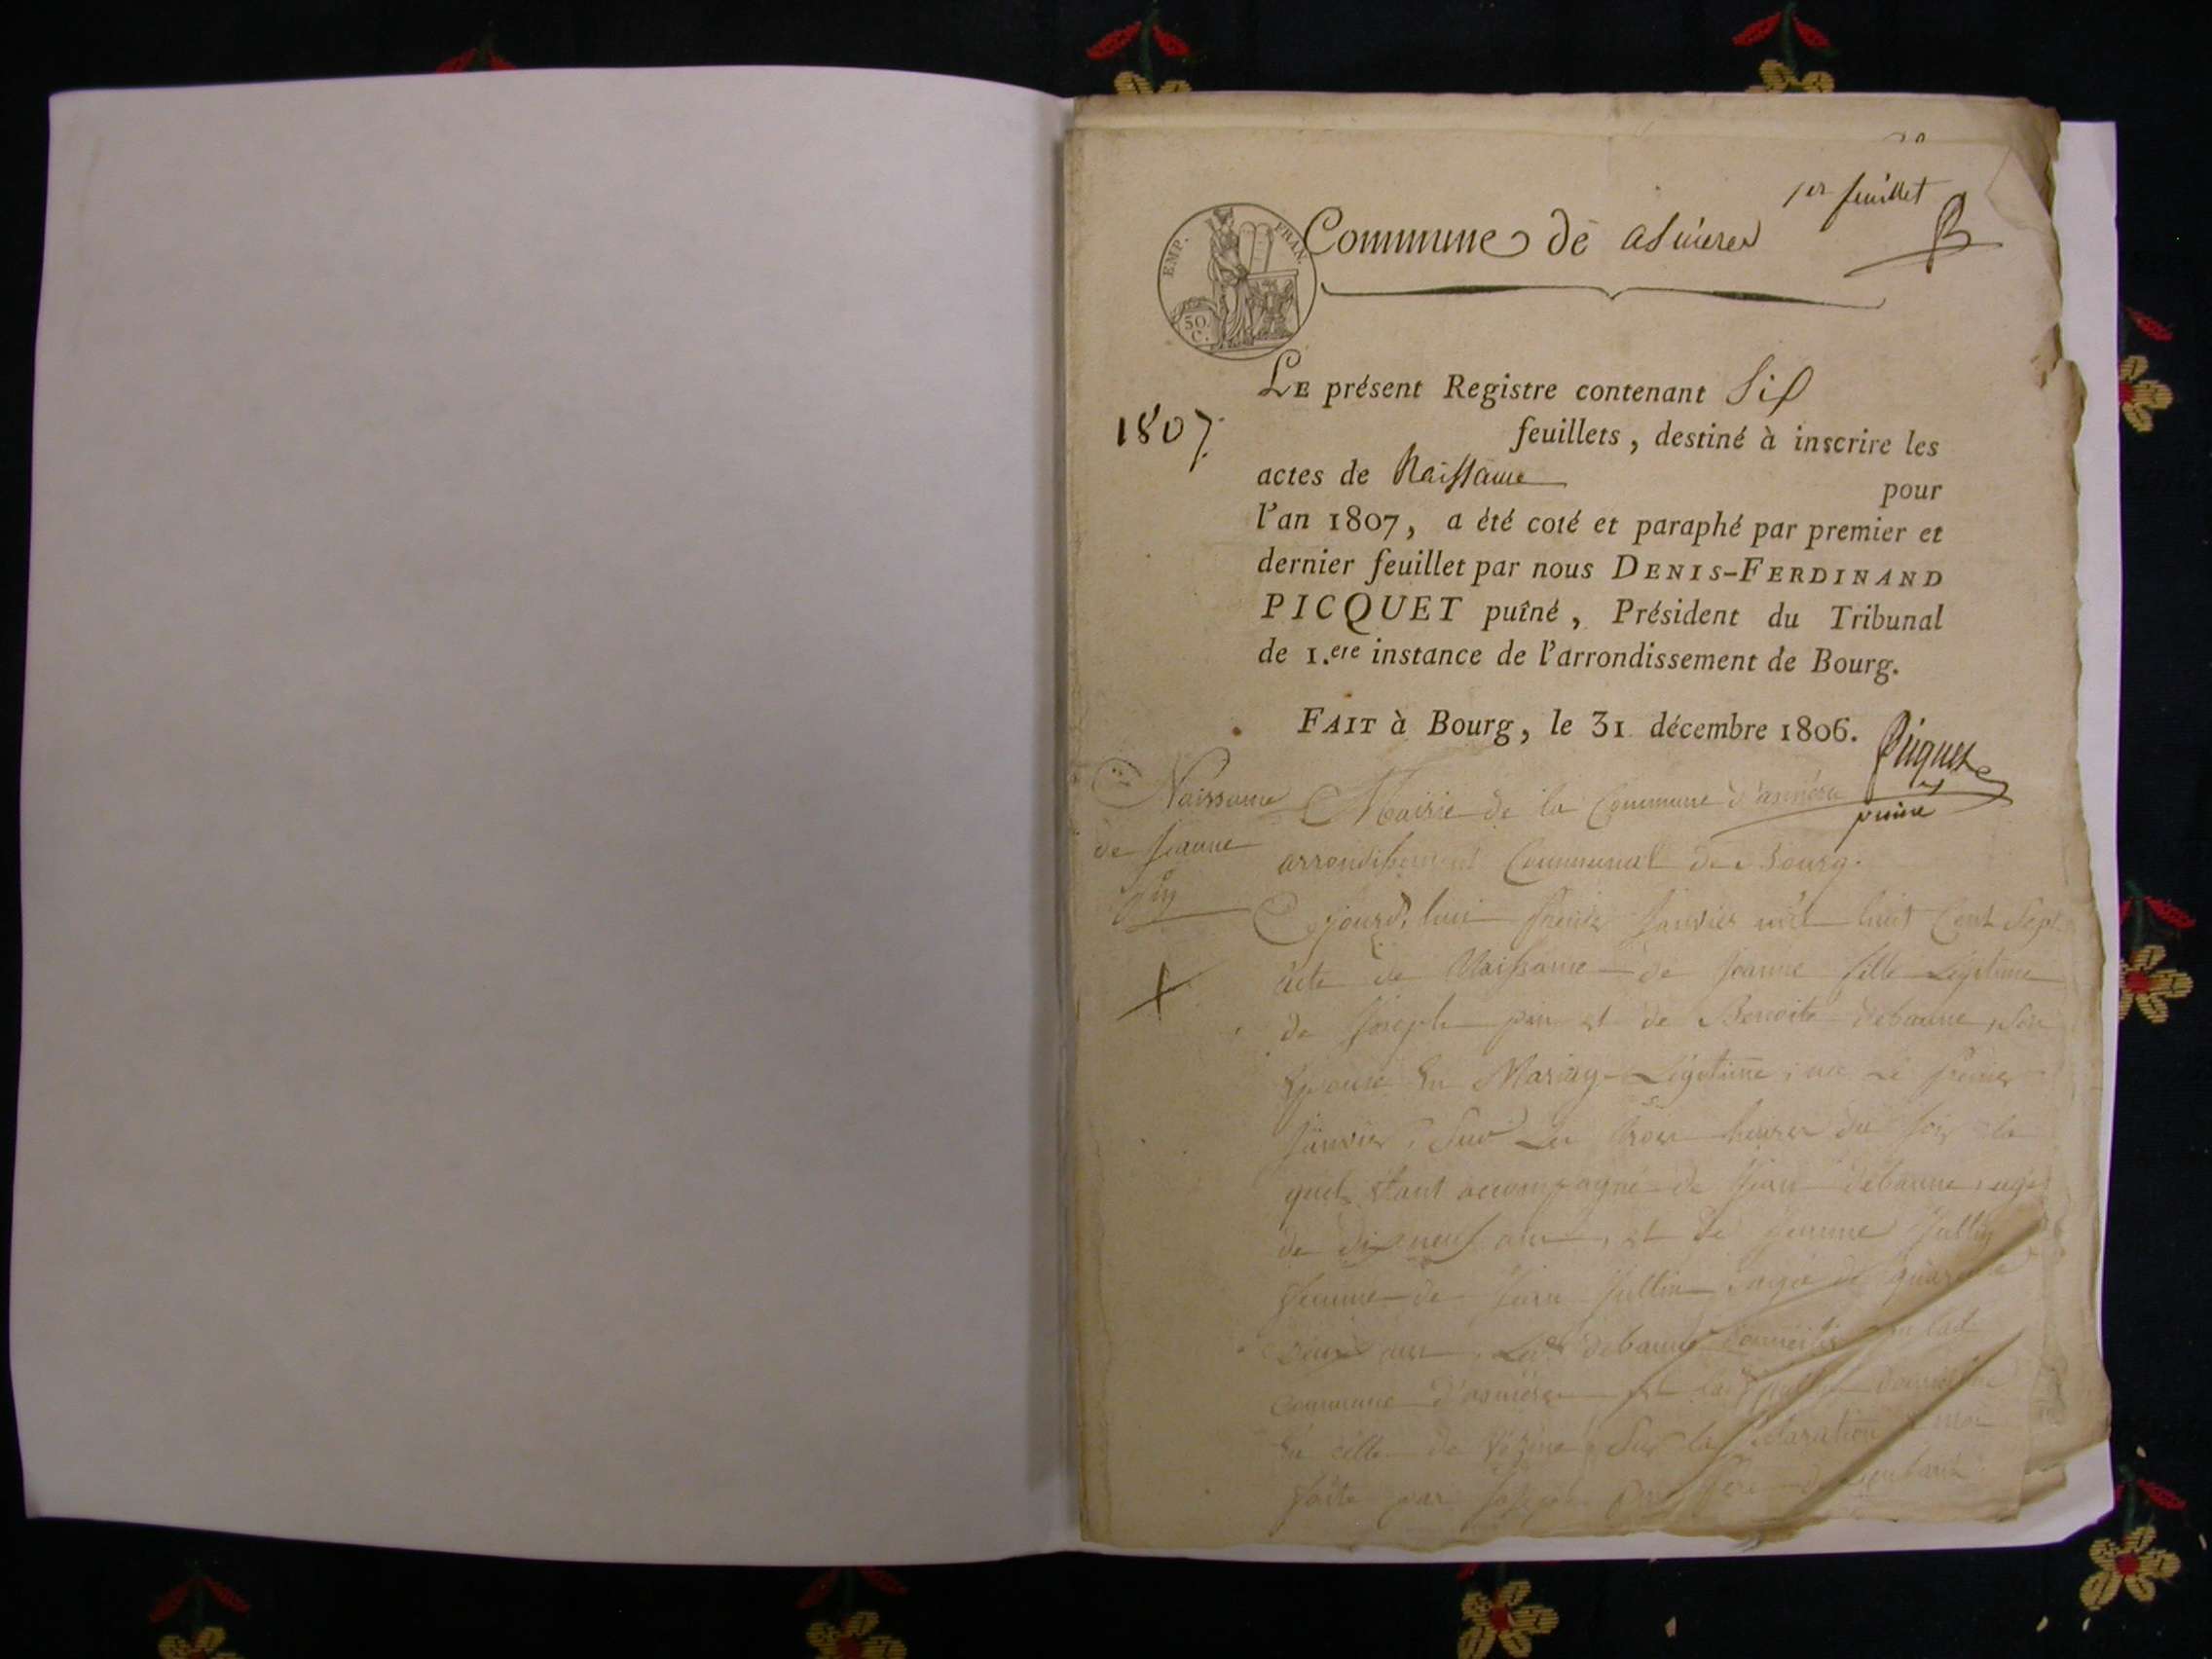 1er feuillet
EMP. FRAN.
50 C.
Commune de asnieres
LE présent Registre contenant Six
1807.
feuillets, destiné à inscrire les
actes de Naissance pour
l'an 1807, a été coté et paraphé par premier et
dernier feuillet par nous DENIS-FERDINAND
PICQUET puîné, Président du Tribunal
de 1.ere instance de l'arrondissement de Bourg.
FAIT à Bourg, le 31 décembre 1806.
Picquet
puiné
Naissance
de Jeanne
Mairie de la Commune d'asnière
arrondissement Communal de Bourg.
jourd'hui Janvier mil huit Cent Sept
acte de Naissance de Jeanne fille Légitime
de Joseph et de Benoite debaune, Son
Epouse En Mariag Légitime, née Le
Janvier, Sur Les trois heures du soir
quel Etant accompagné de Jean debaune, agé
de dix neuf ans, et de Jeanne Jullin
femme de Jean Jullin, agée de quarante
deux ans, debaune domicilié
commune d'asnière domiciliée
En celle de Vésine, Sur la déclaration à moi
faite par Joseph père